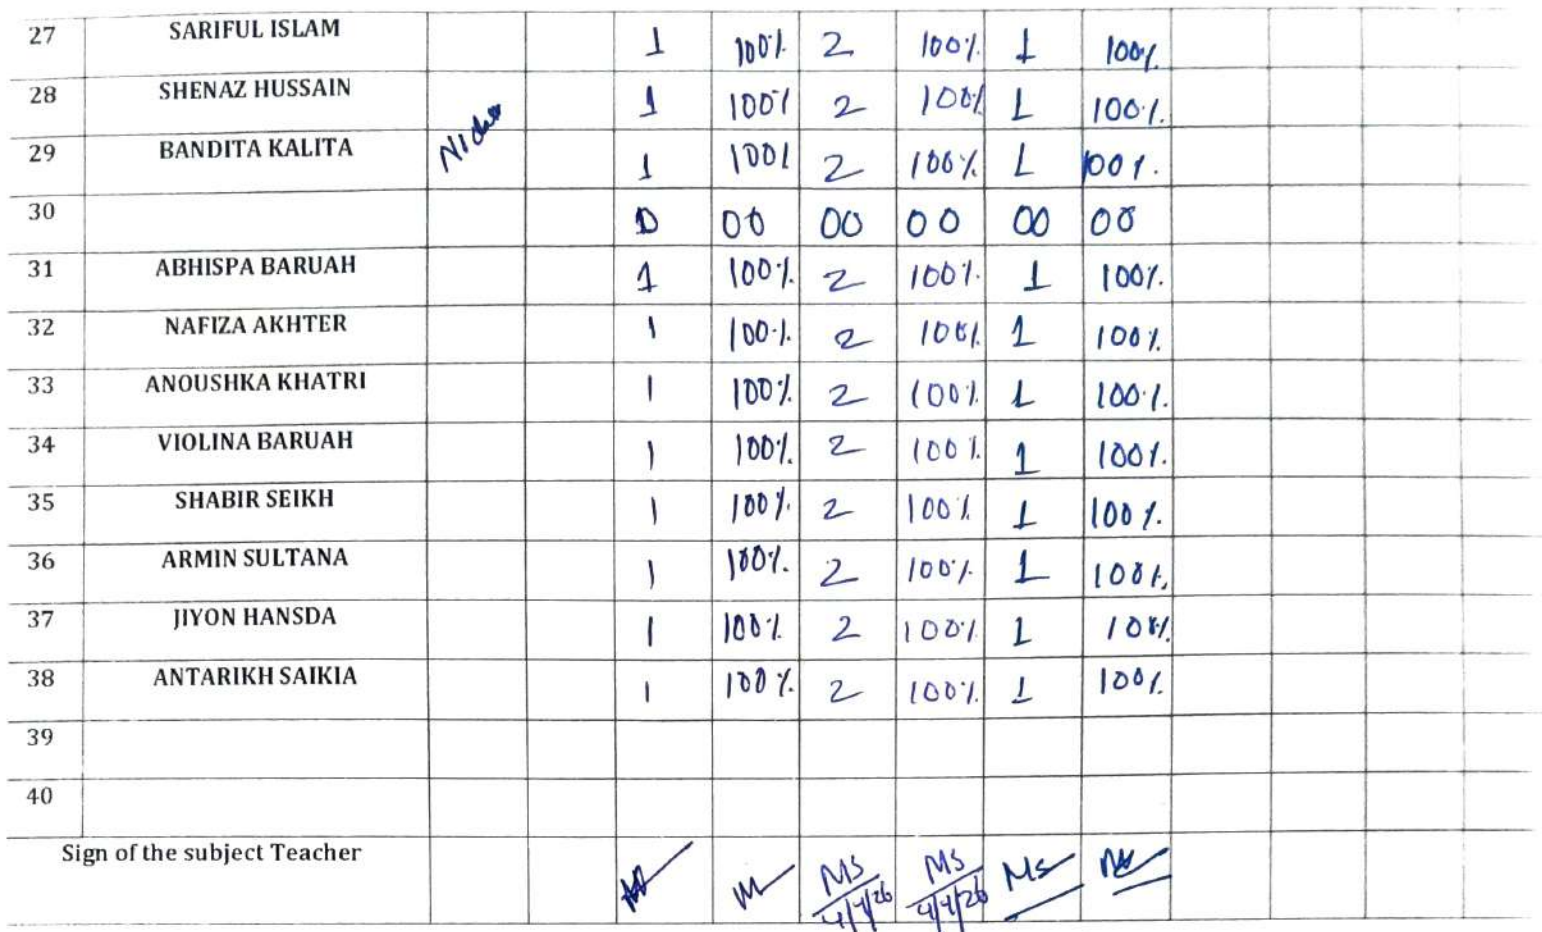 27 SARIFUL ISLAM 1 100% 2 100% 1 100%
28 SHENAZ HUSSAIN 1 100% 2 100% 1 100%
29 BANDITA KALITA 1 100% 2 100% 1 100%
30 0 00 00 00 00 00
31 ABHISPA BARUAH 1 100% 2 100% 1 100%
32 NAFIZA AKHTER 1 100% 2 100% 1 100%
33 ANOUSHKA KHATRI 1 100% 2 100% 1 100%
34 VIOLINA BARUAH 1 100% 2 100% 1 100%
35 SHABIR SEIKH 1 100% 2 100% 1 100%
36 ARMIN SULTANA 1 100% 2 100% 1 100%
37 JIYON HANSDA 1 100% 2 100% 1 100%
38 ANTARIKH SAIKIA 1 100% 2 100% 1 100%
39
40
Sign of the subject Teacher MS MS Ms
4/4/26 4/4/26